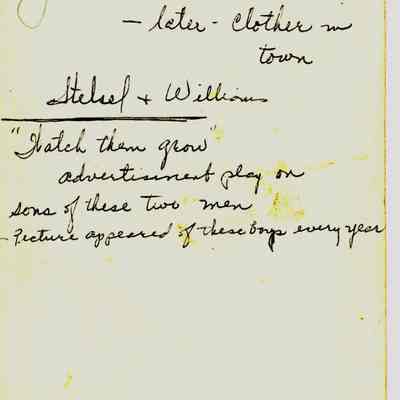 - later - Clother in
town
Stelsel + Williams
"Watch them grow"
advertisement play on
sons of these two men
- Picture appeared of these boys every year